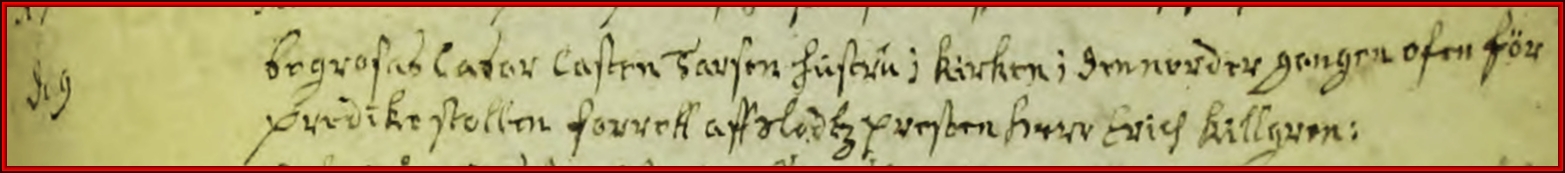 d: 9 begrofas Casten Larsen hustru i kirken i den norder gongen ofen för
predike stollen forrett aff slodtz presten herr Erich Killgren: